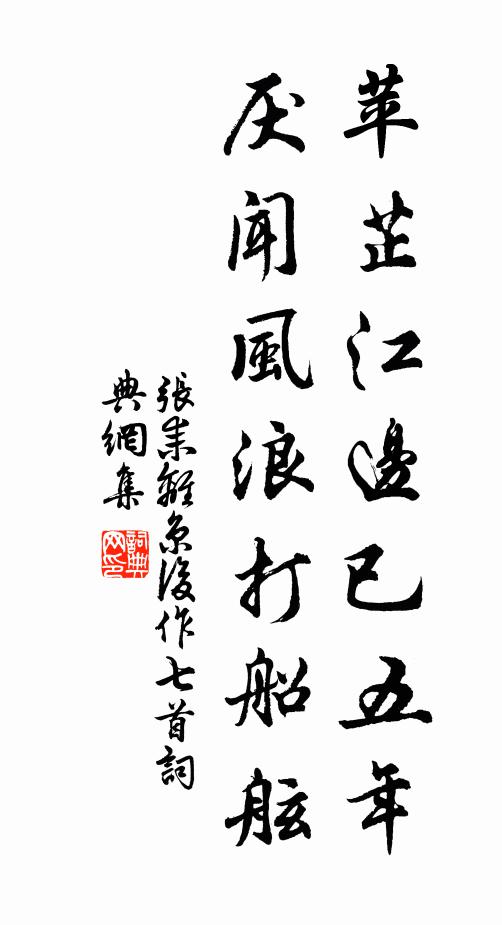 苹芷江邊已五年
厌聞風浪打船舷
張耒離京後作七首詞
典網集
詞典
网印